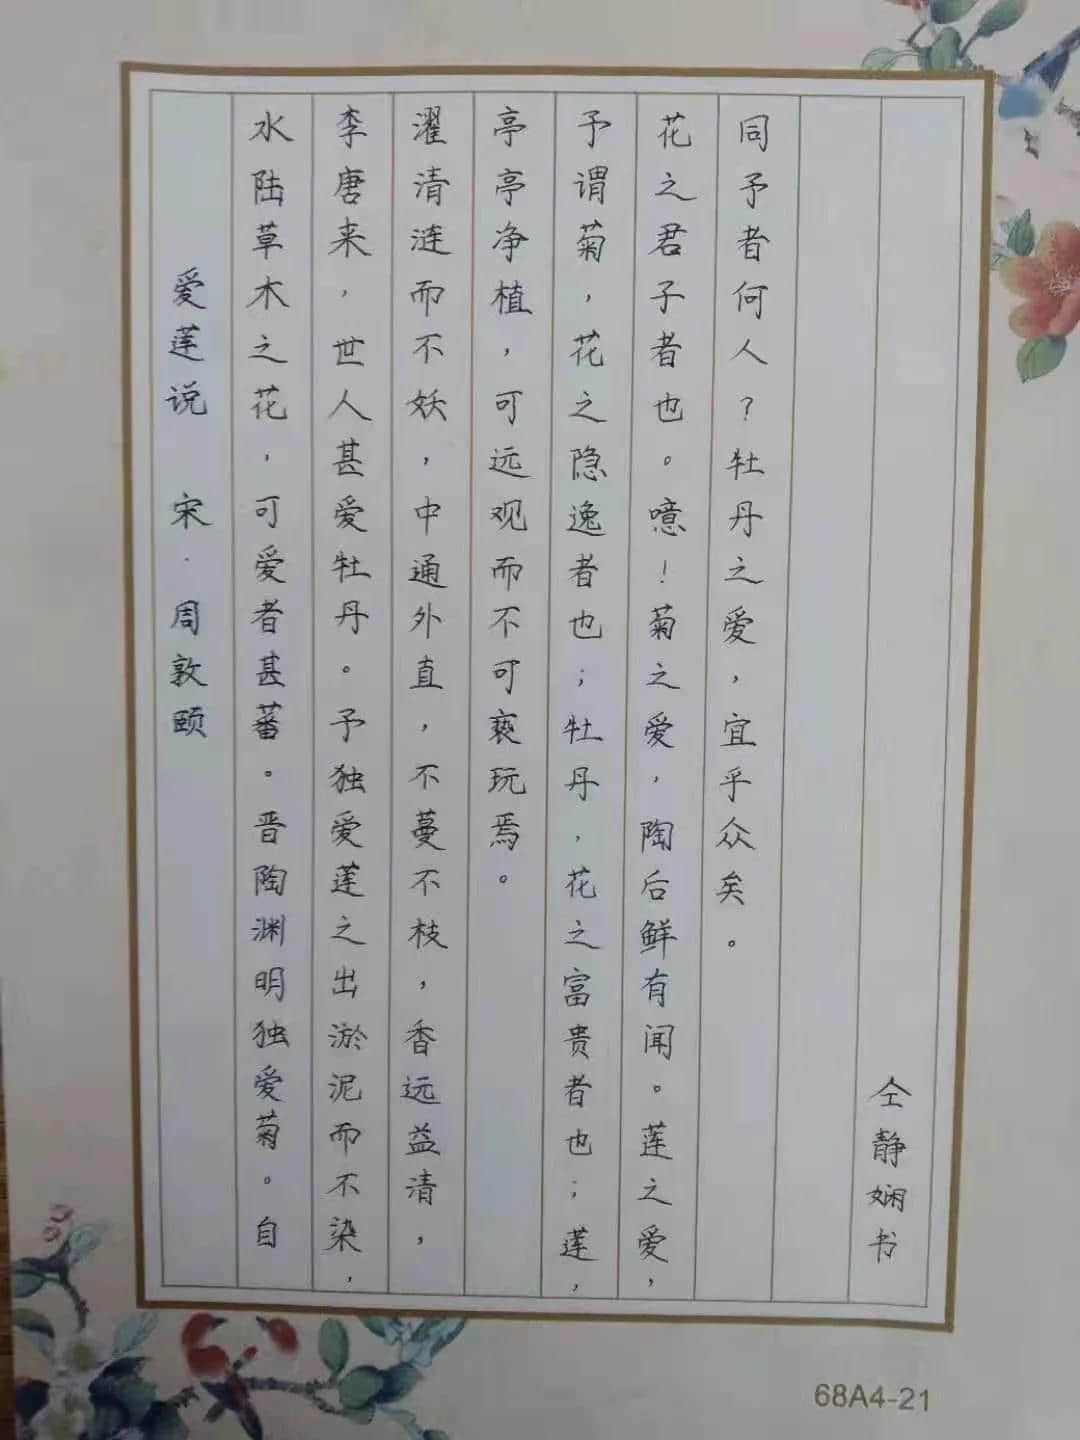 爱莲说 宋·周敦颐
水陆草木之花，可爱者甚蕃。晋陶渊明独爱菊。自
李唐来，世人甚爱牡丹。予独爱莲之出淤泥而不染，
濯清涟而不妖，中通外直，不蔓不枝，香远益清，
亭亭净植，可远观而不可亵玩焉。
予谓菊，花之隐逸者也；牡丹，花之富贵者也；莲，
花之君子者也。噫！菊之爱，陶后鲜有闻。莲之爱，
同予者何人？牡丹之爱，宜乎众矣。
仝静娴书
68A4-21